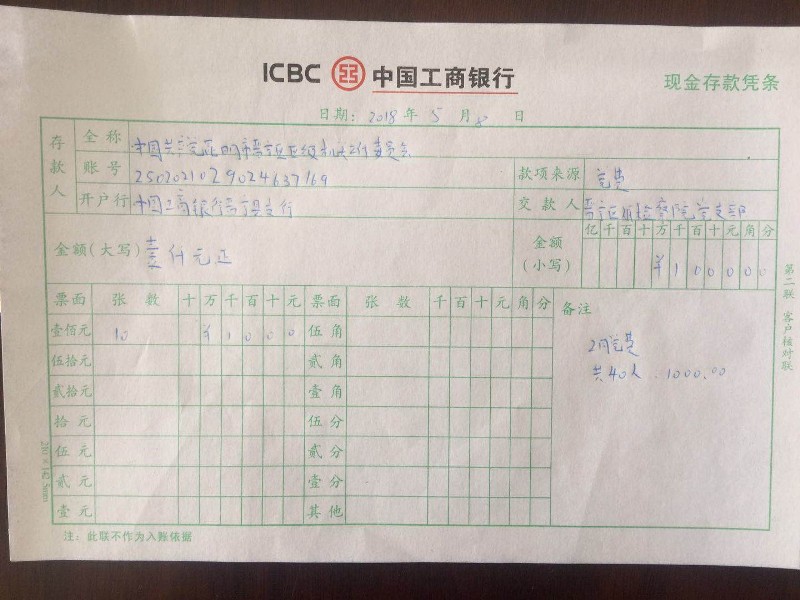 ICBC 中国工商银行
现金存款凭条
日期：2018 年 5 月 8 日
存款人
全称 中国共产党昆明市晋宁区区级机关工作委员会
账号 2502021029024637169
款项来源 党费
开户行 中国工商银行晋宁县支行
交款人 晋宁区检察院党支部
金额（大写） 壹仟元正
金额（小写） 亿 千 百 十 万 千 百 十 元 角 分
¥ 1 0 0 0 0 0
票面 张数 十 万 千 百 十 元 票面 张数 千 百 十 元 角 分 备注
壹佰元 10 ¥ 1 0 0 0 伍角
2月党费
伍拾元 贰角
共40人. 1000.00
贰拾元 壹角
拾元 伍分
伍元 贰分
贰元 壹分
壹元 其他
注：此联不作为入账依据
第二联 客户核对联